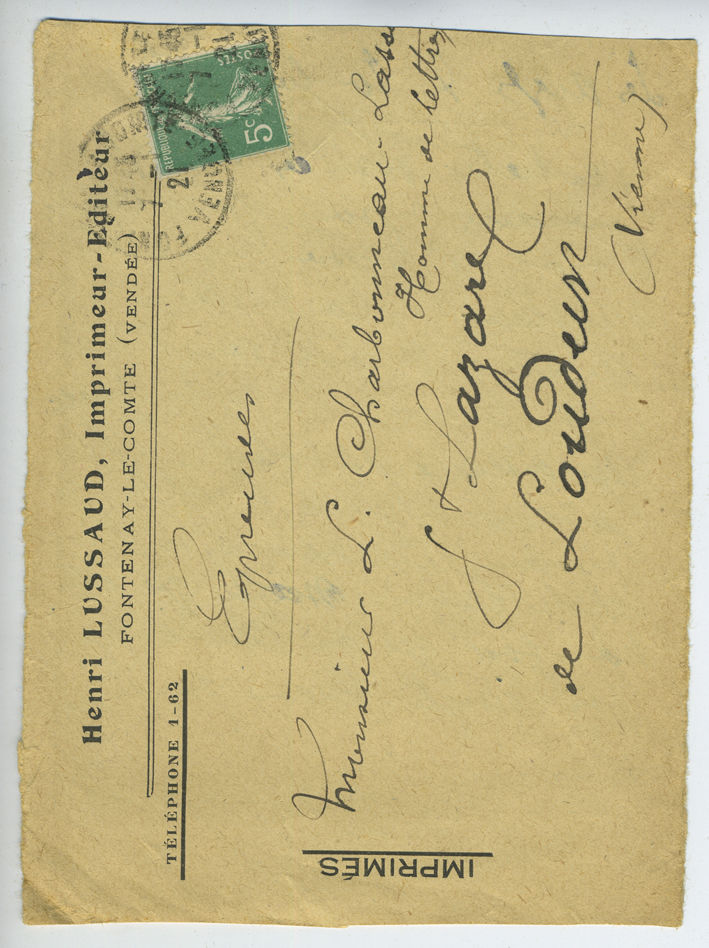 Henri LUSSAUD, Imprimeur-Editeur
FONTENAY-LE-COMTE (VENDÉE)
TÉLÉPHONE 1-62
POSTES
5c
Epreuves
Monsieur L. Charbonneau-Lass
Homme de lettres
St Lazare
de Loudun
(Vienne)
IMPRIMÉS